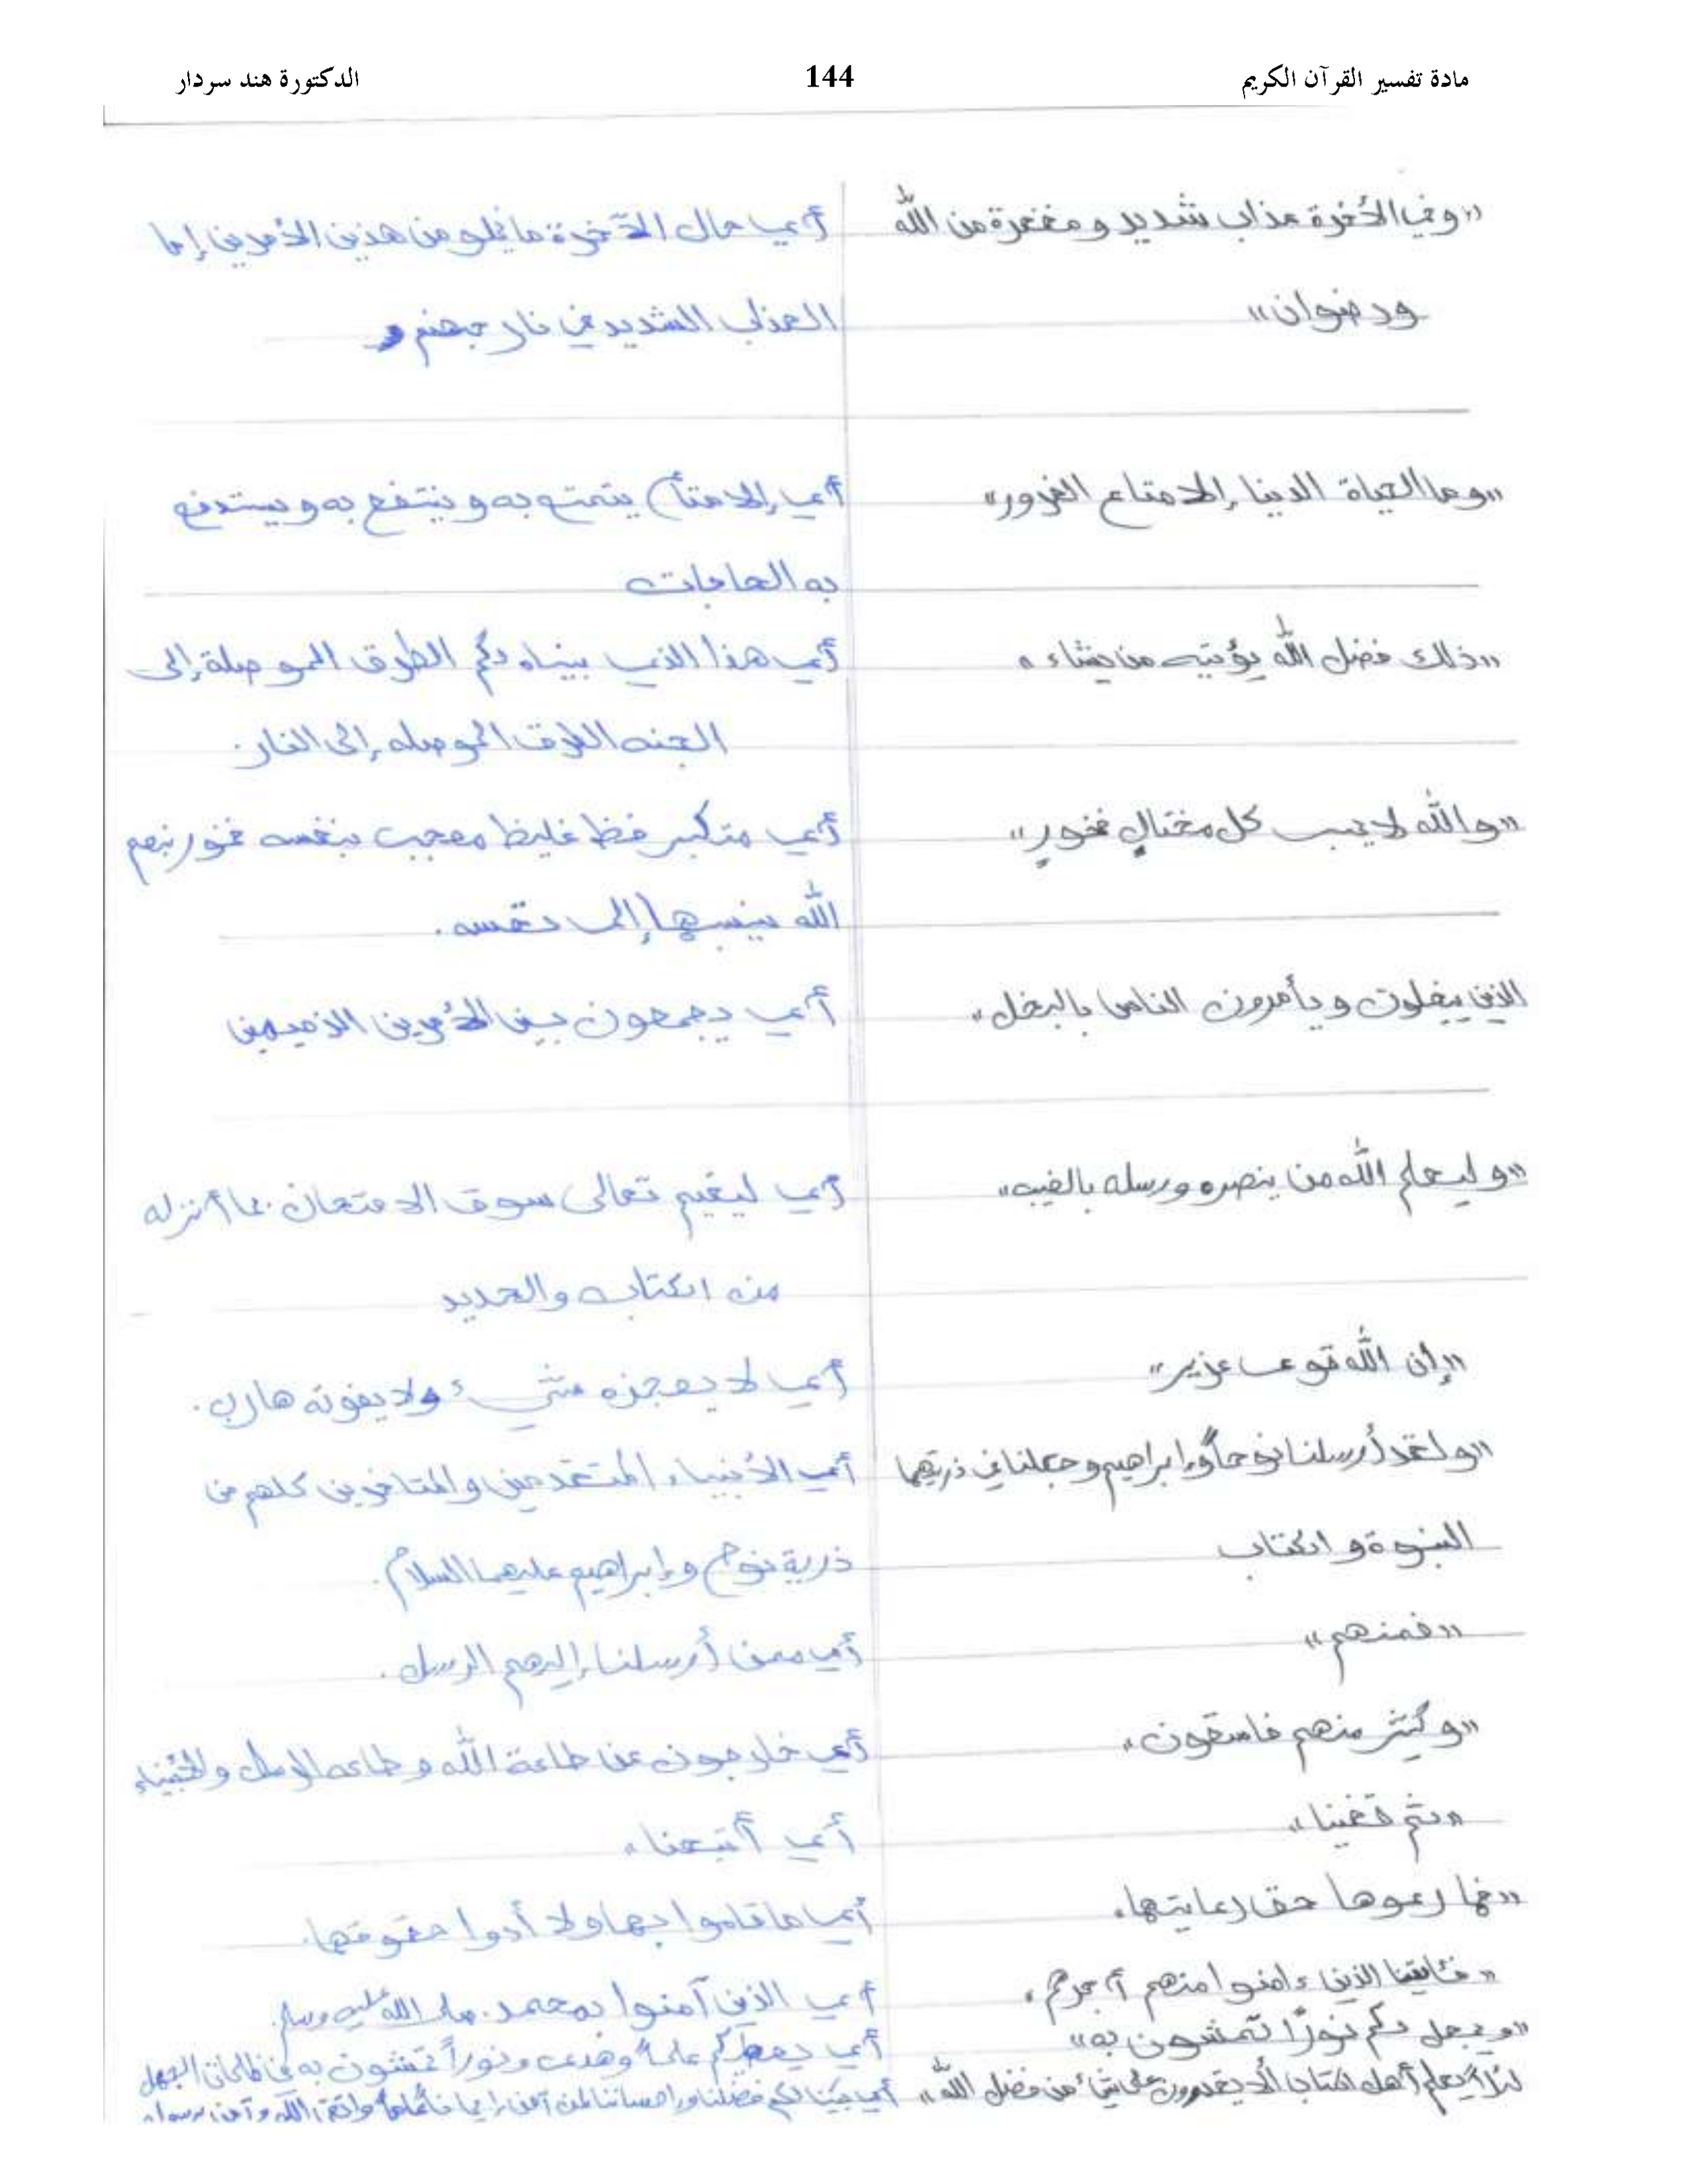 مادة تفسير القرآن الكريم 144 الدكتورة هند سردار
«وفي الأخرة عذاب شديد ومغفرة من الله أي حال الآخرة ما يخلو من هذين الأمرين إما
ورضوان» العذاب الشديد في نار جهنم
«وما الحياة الدنيا إلا متاع الغرور» أي إلا متاع يتمتع به وينتفع به ويستدفع
به الحاجات
«ذلك فضل الله يؤتيه من يشاء» أي هذا الذي بيناه لكم الطرق الموصلة إلى
الجنه الطرق الموصله إلى النار.
«والله لا يحب كل مختالٍ فخورٍ» أي متكبر فظ غليظ معجب بنفسه فخور بنعم
الله ينسبها إلى نفسه.
الذين يبخلون ويأمرون الناس بالبخل» أي يجمعون بين الأمرين الذميمين
«وليعلم الله من ينصره ورسله بالغيب» أي ليقيم تعالى سوق الامتحان بما أنزله
من الكتاب والحديد
«إن الله قوي عزيز» أي لا يعجزه شيء ولا يفوته هارب.
«ولقد أرسلنا نوحاً وإبراهيم وجعلنا في ذريتهما أي الأنبياء المتقدمين والمتاخرين كلهم من
النبوة و الكتاب ذرية نوح وإبراهيم عليهما السلام.
«فمنهم» أي ممن أرسلنا إليهم الرسل.
«وكثير منهم فاسقون» أي خارجون عن طاعة الله وطاعه الرسل والأنبياء
«ثم قفينا» أي أتبعنا
«فما رعوها حق رعايتها» أي ما قاموا بها ولا أدوا حقوقها.
«فئاتينا الذين ءامنوا منهم أجرهم» أي الذين آمنوا بمحمد صلى الله عليه وسلم.
«ويجعل لكم نورًا تمشون به» أي يعطيكم علماً وهدى ونوراً تمشون به في ظلمات الجهل
لئلا يعلم أهل الكتاب ألا يقدرون على شيء من فضل الله» أي بينا لكم فضلنا وإحساننا لمن آمن إيمانا عاماً واتقى الله وآمن برسوله